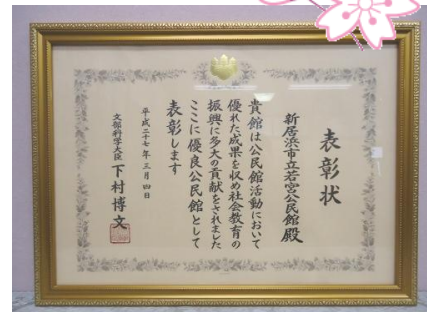 表彰状
新居浜市立若宮公民館殿
貴館は公民館活動において
優れた成果を収め社会教育の
振興に多大の貢献をされました
ここに優良公民館として
表彰します
平成二十七年三月四日
文部科学大臣 下村博文